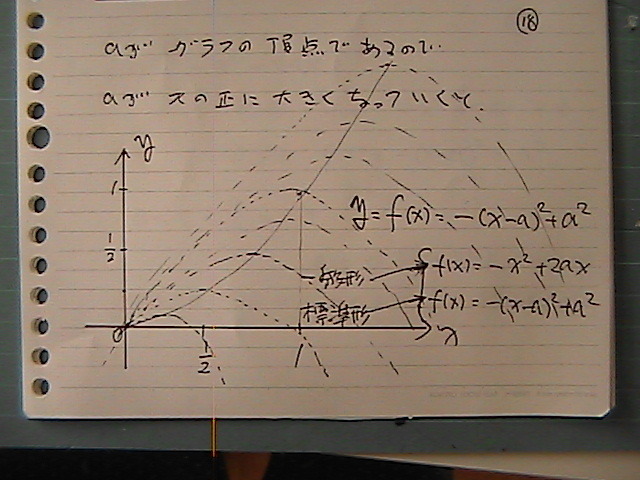 ⑱
aが グラフの 頂点であるので
aが xの正に大きくなっていくと、
y
1
1/2
y = f(x) = -(x-a)²+a²
一般形 f(x) = -x²+2ax
標準形 f(x) = -(x-a)²+a²
0 1/2 1 x